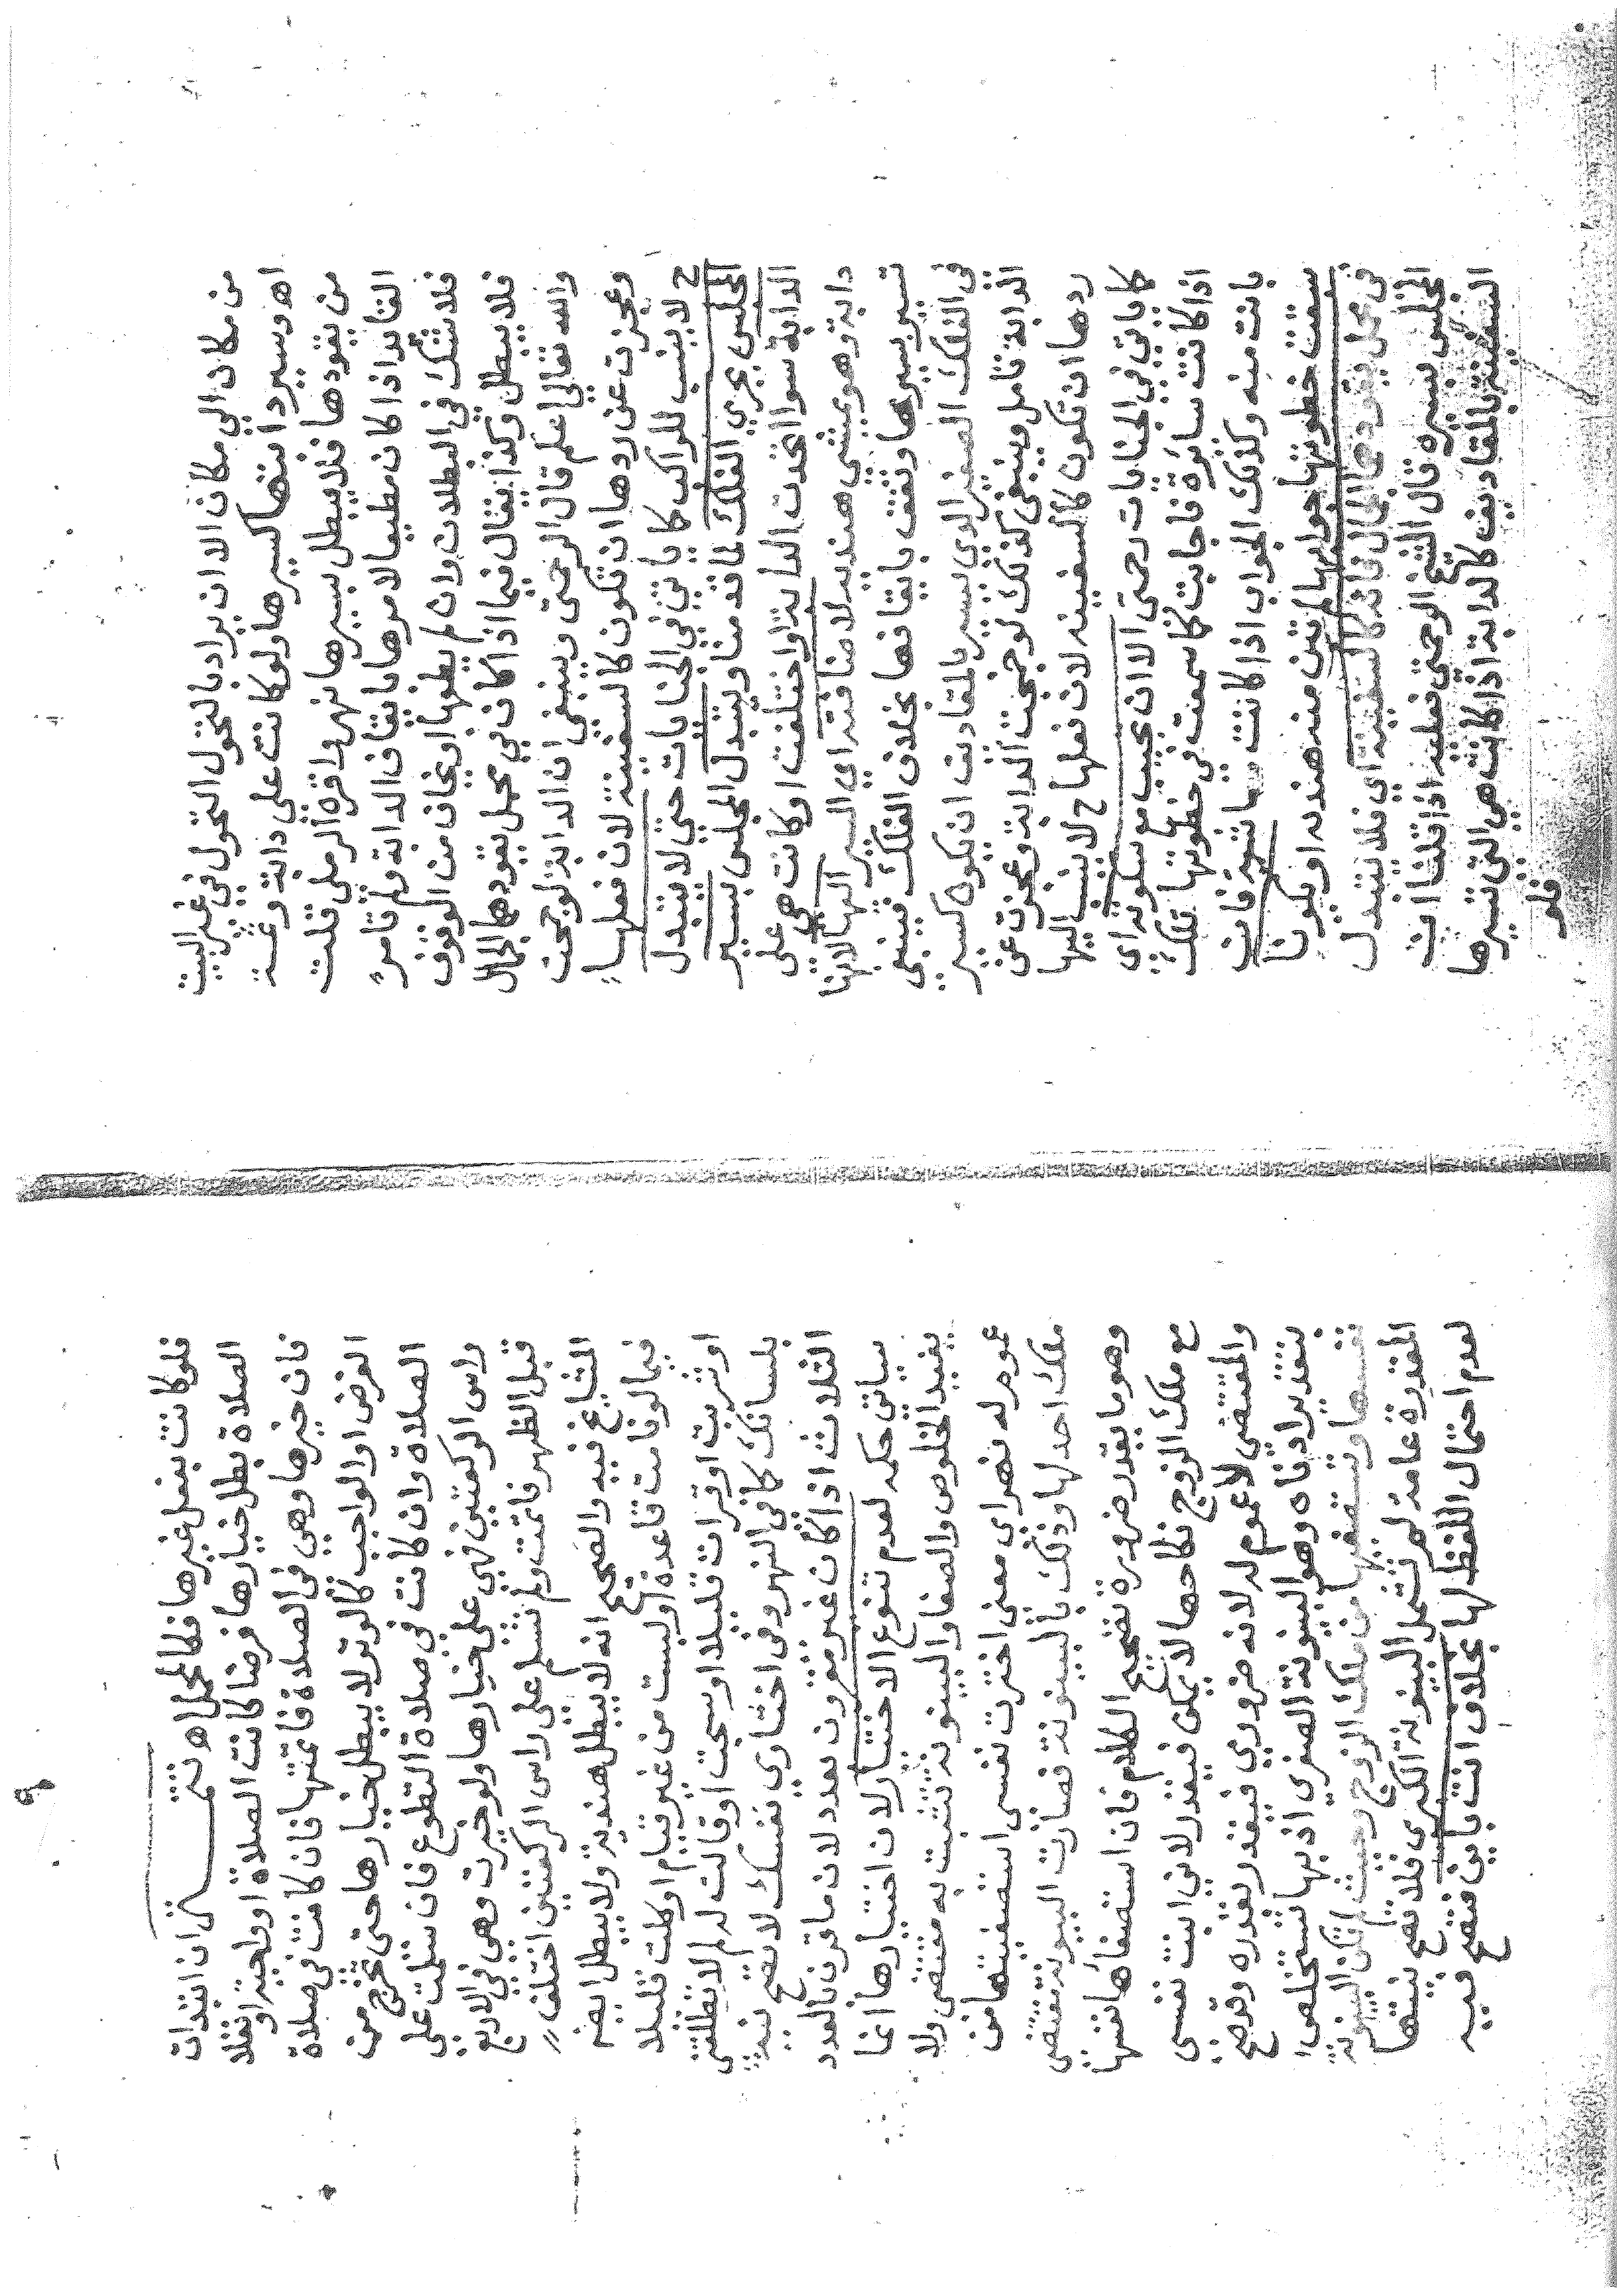 من مكان الي مكان الا ان يراد بالتحول التحول في غير البيت
اهـ وسير دابتها كسيرها ولو كانت على دابة وثمة
من يقودها فلا يبطل بسيرها نهر واقره الرملى قلت
القايد اذا كان مطيعا لامرها بايقاف الدابة ولم تامره
فلا شك في البطلان وان لم يطعها او يخاف من الوقوف
فلا يبطل وكذا يقال فيما اذا كان في محمل يقودها الجمال
والله تعالي اعلم قال الرحمتى وينبغى ان الدابة لو جمحت
وعجزت عن ردها ان تكون كالسفينة لان فعلها
ح لا ينسب للراكب كما ياتي في الجنايات حتى لا يتبدل
المجلس بجري الفلك لما قدمنا ويتبدل المجلس بسير
الدابة سوا اتحدت الدابة او اختلفت او كانت هي على
دابة وهو يمشى هنديه لاضافته اي السير اليها لانها
تسير بسيرها وتقف بايقافها بخلاف الفلك فينبغى
فى الفلك الصغير الذى يسير بالمقاديف ان يكون كسير
الدابة تامل وينبغى كذلك لو جمحت الدابة وعجزت عن
ردها ان تكون كالسفينه لان فعلها ح لا ينسب اليها
كما ياتي في الجنايات رحمتى الا ان تجيب مع سكوته اي
اذا كانت سائرة فاجابت كما سمعت في خطوتها تلك
بانت منه وكذلك الجواب اذا كانت تسير فان
سبقت خطوتها جوابها لم تبن منه هنديه او يكونا
فى محمل يقودهما الجمال فانه كالسفينة اى فلا يتبدل
المجلس بسيره قال الشيخ الرحمتى فعلته اذا قلنا ان
السفينة بالمقاديف كالدابة اذا كانت هي التى تسيرها
فلو
فلو كانت بفعل غيرها فكالمحمل اهـ تتمـــة ان ابتدات
الصلاة بطل خيارها فرضا كانت الصلاة او واجبة او نفلا
فان خيرها وهي فى الصلاة فاتمتها فان كانت فى صلاة
الفرض او الواجب كالوتر لا يبطل خيارها حتى تخرج من
الصلاة وان كانت فى صلاة التطوع فان سلمت على
راس الركعتين فهي على خيارها ولو خيرت وهي في الاربع
قبل الظهر فاتمت ولم تسلم على راس الركعتين اختلف
المشايخ فيه والصحيح انه لا يبطل هنديه ولا يبطل ايضا
فيما لو قامت قاعدة او لبست من غير قيام او اكلت قليلا
او شربت او قرات قليلا او سبحت او قالت له لم لا تطلقنى
بلسانك كما فى النهر وفى اختارى نفسك لا تصح نية
الثلاث اذا كان غير مقرون بعدد لان ما قرن بالعدد
سياتى حكمه لعدم تنوع الاختيار لان اختيارها انما
يفيد الخلوص والصفا والبينونة تثبت به مقتضى ولا
عموم له نهر اى معنى اخترت نفسى استصفيتها من
ملك احد لها وذلك بالبينونة فصارت البينونة مقتضى
وهو ما يقدر ضرورة تصحيح الكلام فان استصفاها نفسها
مع ملك الزوج نكاحها لا يمكن فيقدر لاني ابنت نفسى
والمقتضى لا عموم له لانه ضروري فيقدر بقدره وترجح
بتقدير ارادناه وهو البينونة الصغرى اذ بها تستخلص
نفسها وتستصفيها من ملك الزوج وحيث لم تكن البينونة
المقدرة عامة لم تشمل البينونة الكبرى فلا تصح نيتها
لعدم احتمال اللفظ لها بخلاف انت باين فتصح فيه